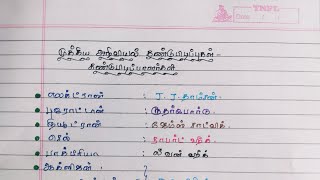 TNPL
Date
முக்கிய அறிவியல் கண்டுபிடிப்புகள் -
கண்டுபிடிப்பாளர்கள்
எலக்ட்ரான் : J. J. தாம்சன்.
புரோட்டான் : ரூதர்போர்டு.
நியூட்ரான் : ஜேம்ஸ் சாட்விக்.
செல் : ராபர்ட் ஹூக்.
பாக்டீரியா : லீவன் ஹூக்
ஆக்ஸிஜன் :